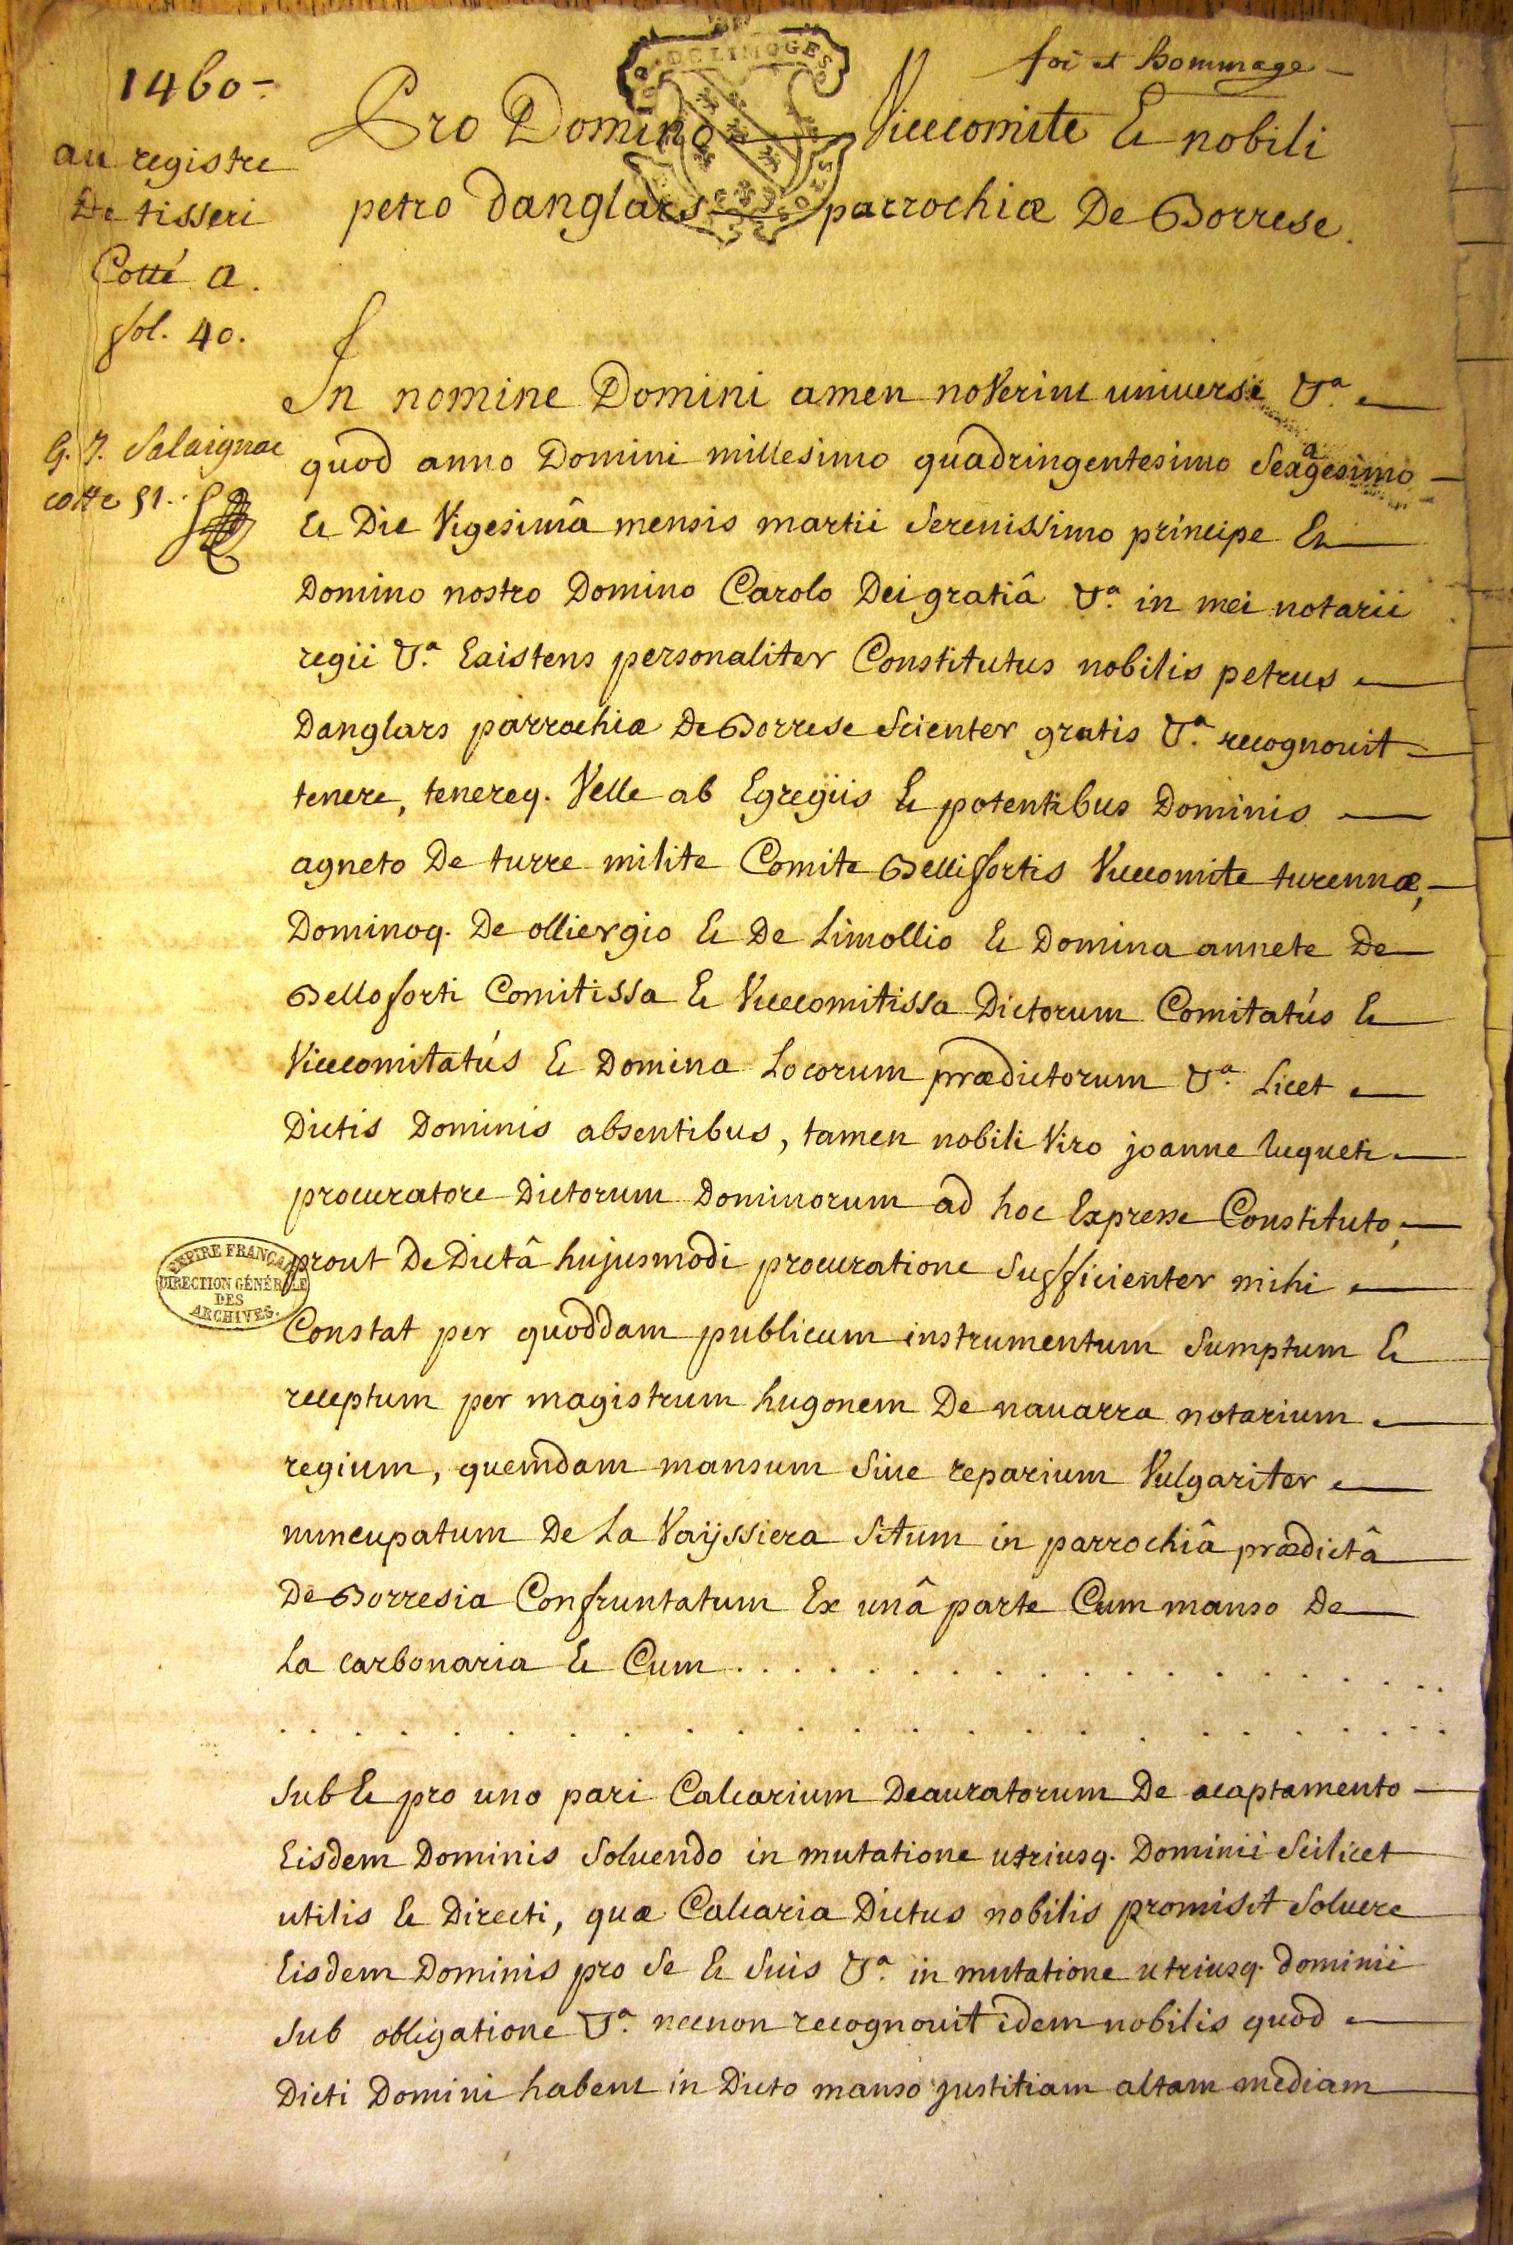 1460-
foi et hommage
DE LIMOGES
au registre
De tisseri
Cotté a.
fol. 40.
G. J. Salaignac
cotte 51.
Pro Domino Vicecomite & nobili
petro Danglars parrochiæ De Borrese.
In nomine Domini amen noverint universi &a.
quod anno Domini millesimo quadringentesimo Sexagesimo
& Die Vigesimâ mensis martii Serenissimo principe &
Domino nostro Domino Carolo Dei gratiâ &a. in mei notarii
regii &a. Existens personaliter Constitutus nobilis petrus
Danglars parrochiæ De Borrese Scienter gratis &a. recognouit
tenere, tenereq. Velle ab Egregiis & potentibus Dominis
agneto De turre milite Comite Bellifortis Vicecomite turennæ,
Dominoq. De olliergio & De Limollio & Domina annete De
Belloforti Comitissa & Vicecomitissa Dictorum Comitatús &
Vicecomitatús & Domina Locorum prædictorum &a. Licet
Dictis Dominis absentibus, tamen nobili Viro joanne luqueti
procuratore Dictorum Dominorum ad hoc Expresse Constituto,
prout De Dictâ hujusmodi procuratione Sufficienter mihi
Constat per quoddam publicum instrumentum Sumptum &
receptum per magistrum hugonem De nauarra notarium
regium, quemdam mansum Siue reparium Vulgariter
nuncupatum De La Vaÿssiera Situm in parrochiâ prædictâ
De Borresia Confruntatum Ex unâ parte Cum manso De
La carbonaria & Cum . . . . . . . . . . . . . . . . . .
. . . . . . . . . . . . . . . . . . . . . .
Sub & pro uno pari Calcarium Deauratorum De acaptamento
Eisdem Dominis Soluendo in mutatione utriusq. Dominii Scilicet
utilis & Directi, quæ Calcaria Dictus nobilis promisit Soluere
Eisdem Dominis pro Se & Suis &a. in mutatione utriusq. dominii
Sub obligatione &a. necnon recognouit idem nobilis quod
Dicti Domini habent in Dicto manso justitiam altam mediam
EMPIRE FRANÇAIS
DIRECTION GÉNÉRALE
DES
ARCHIVES.